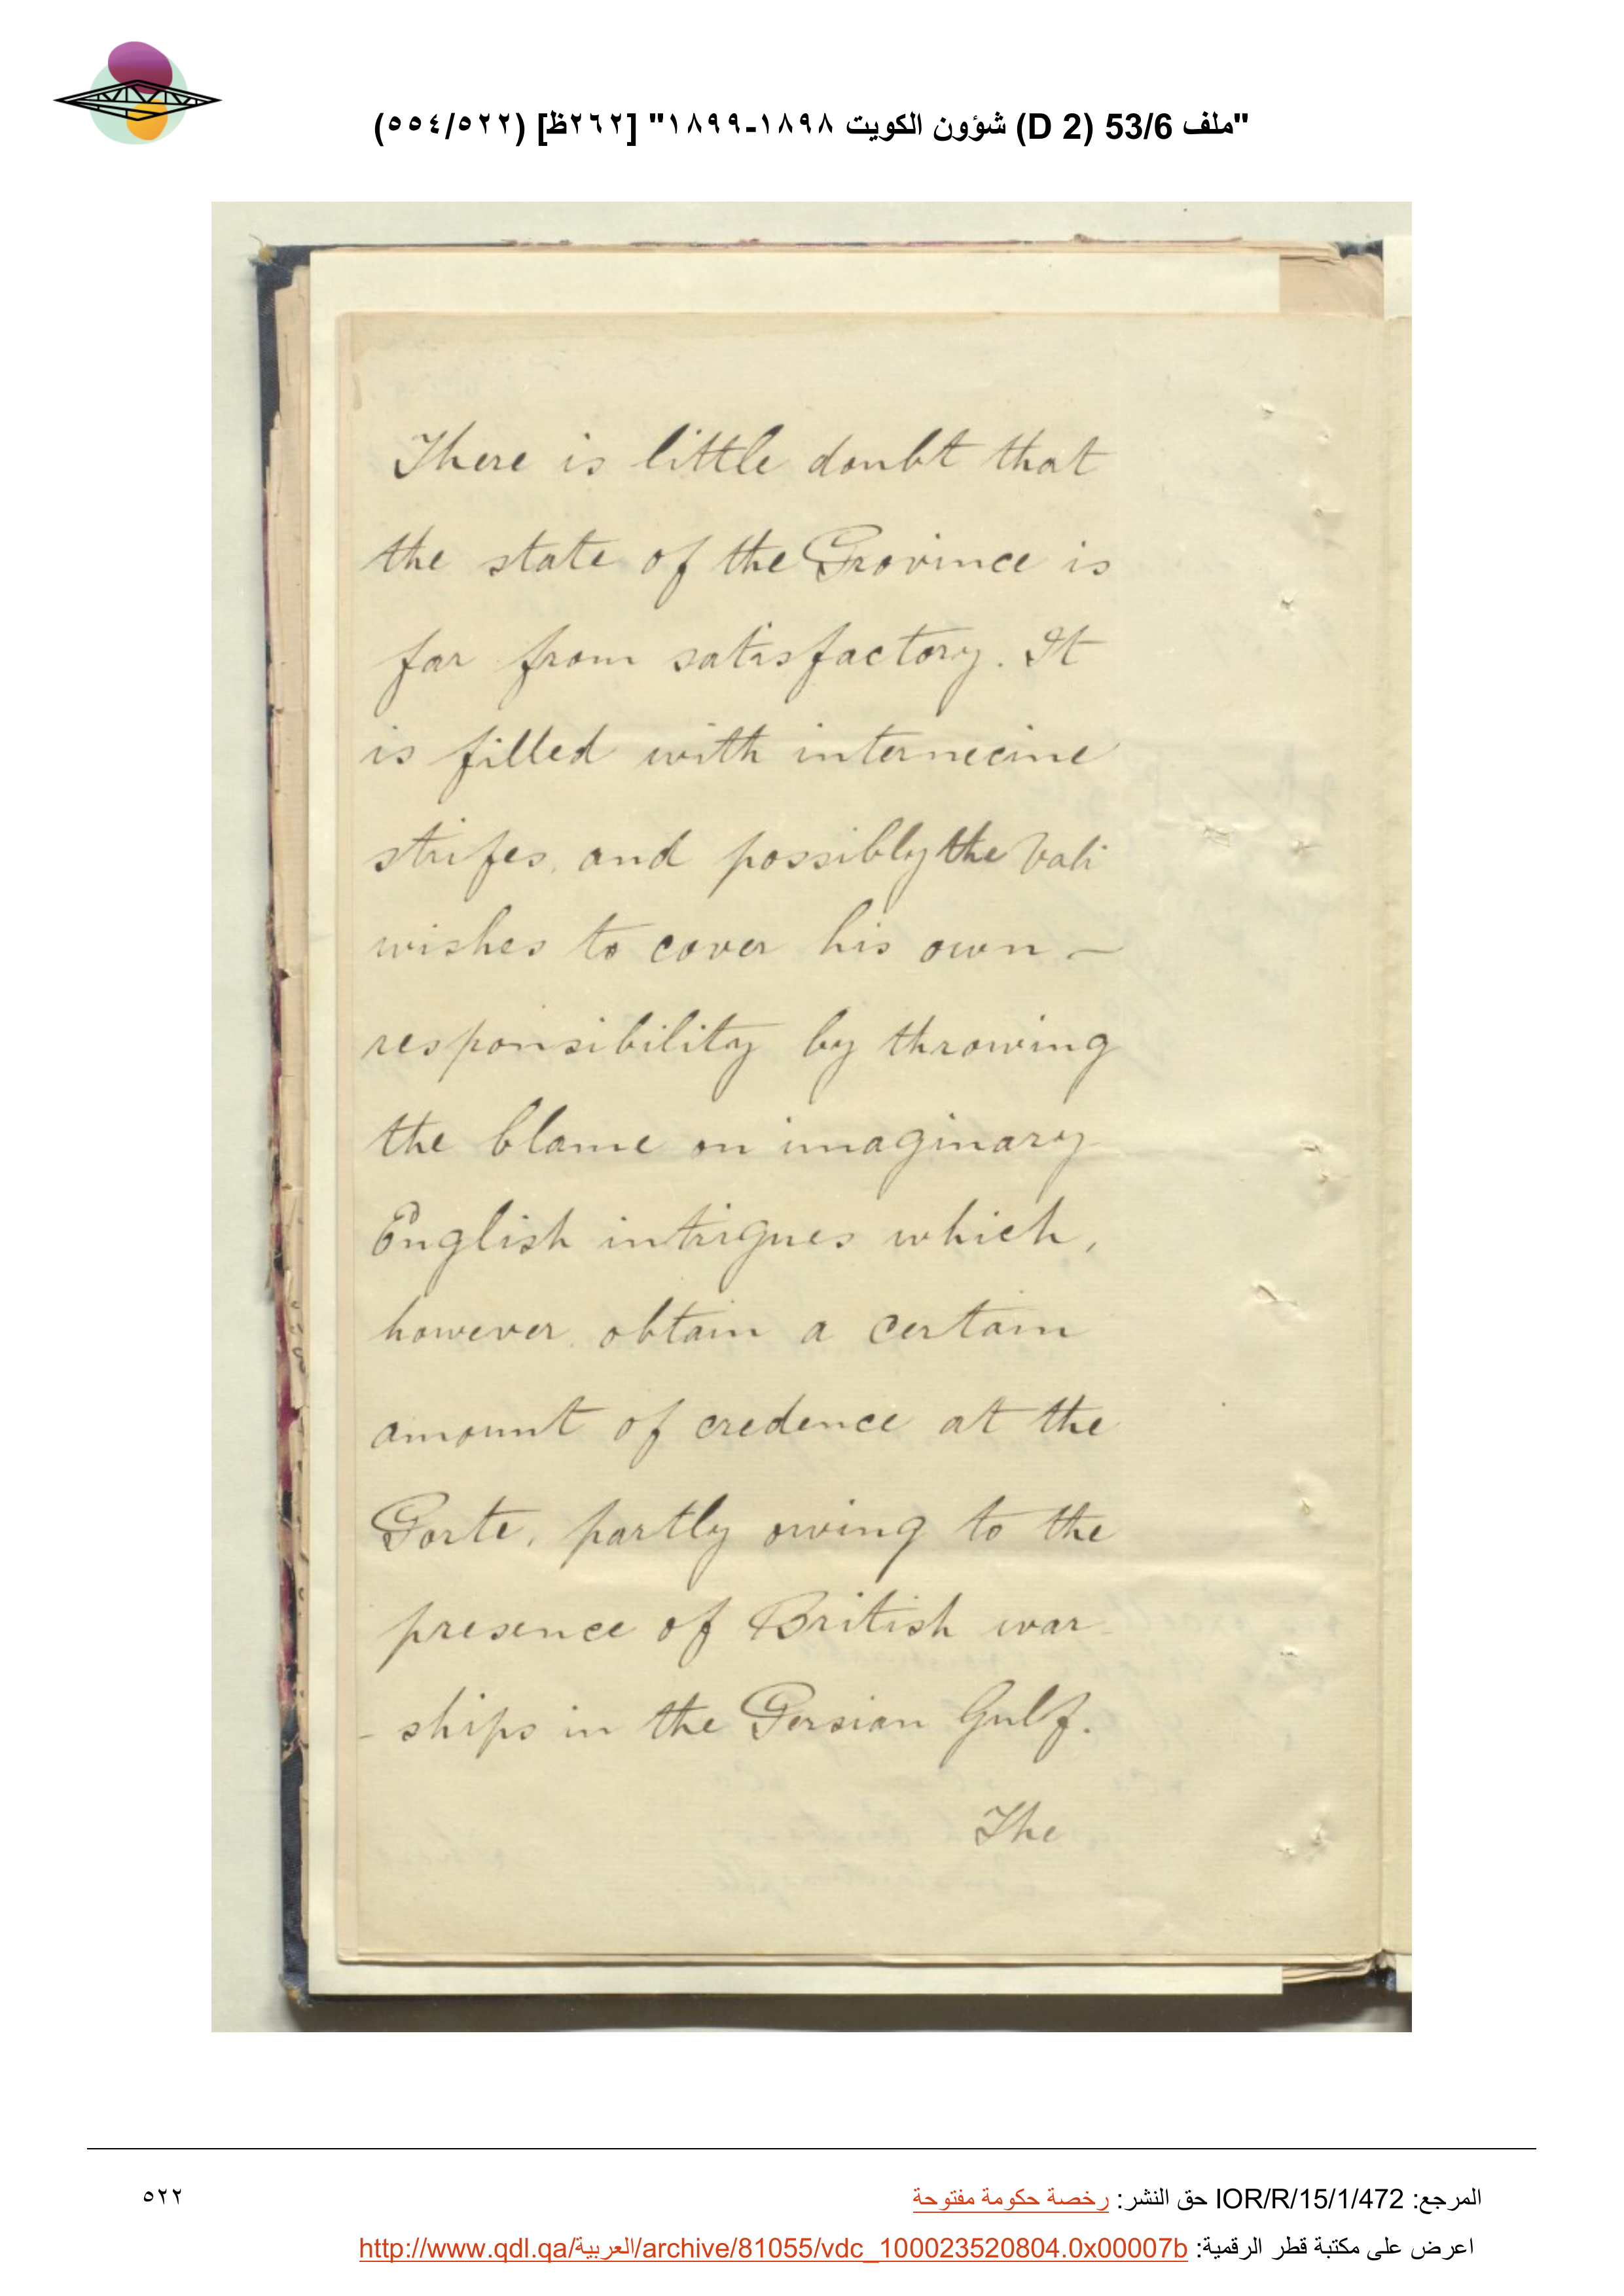 "ملف 53/6 (D 2) شؤون الكويت ١٨٩٨-١٨٩٩" [٢٦٢ظ] (٥٥٤/٥٢٢)
There is little doubt that
the state of the Province is
far from satisfactory. It
is filled with internecine
strifes, and possibly the Vali
wishes to cover his own —
responsibility by throwing
the blame on imaginary
English intrigues which,
however, obtain a certain
amount of credence at the
Porte, partly owing to the
presence of British war-
- ships in the Persian Gulf.
The
المرجع: IOR/R/15/1/472 حق النشر: رخصة حكومة مفتوحة
٥٢٢
اعرض على مكتبة قطر الرقمية: http://www.qdl.qa/العربية/archive/81055/vdc_100023520804.0x00007b